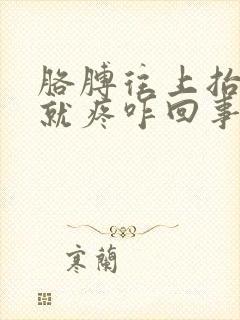 胳膊往上抬
就疼咋回事
寒蘭